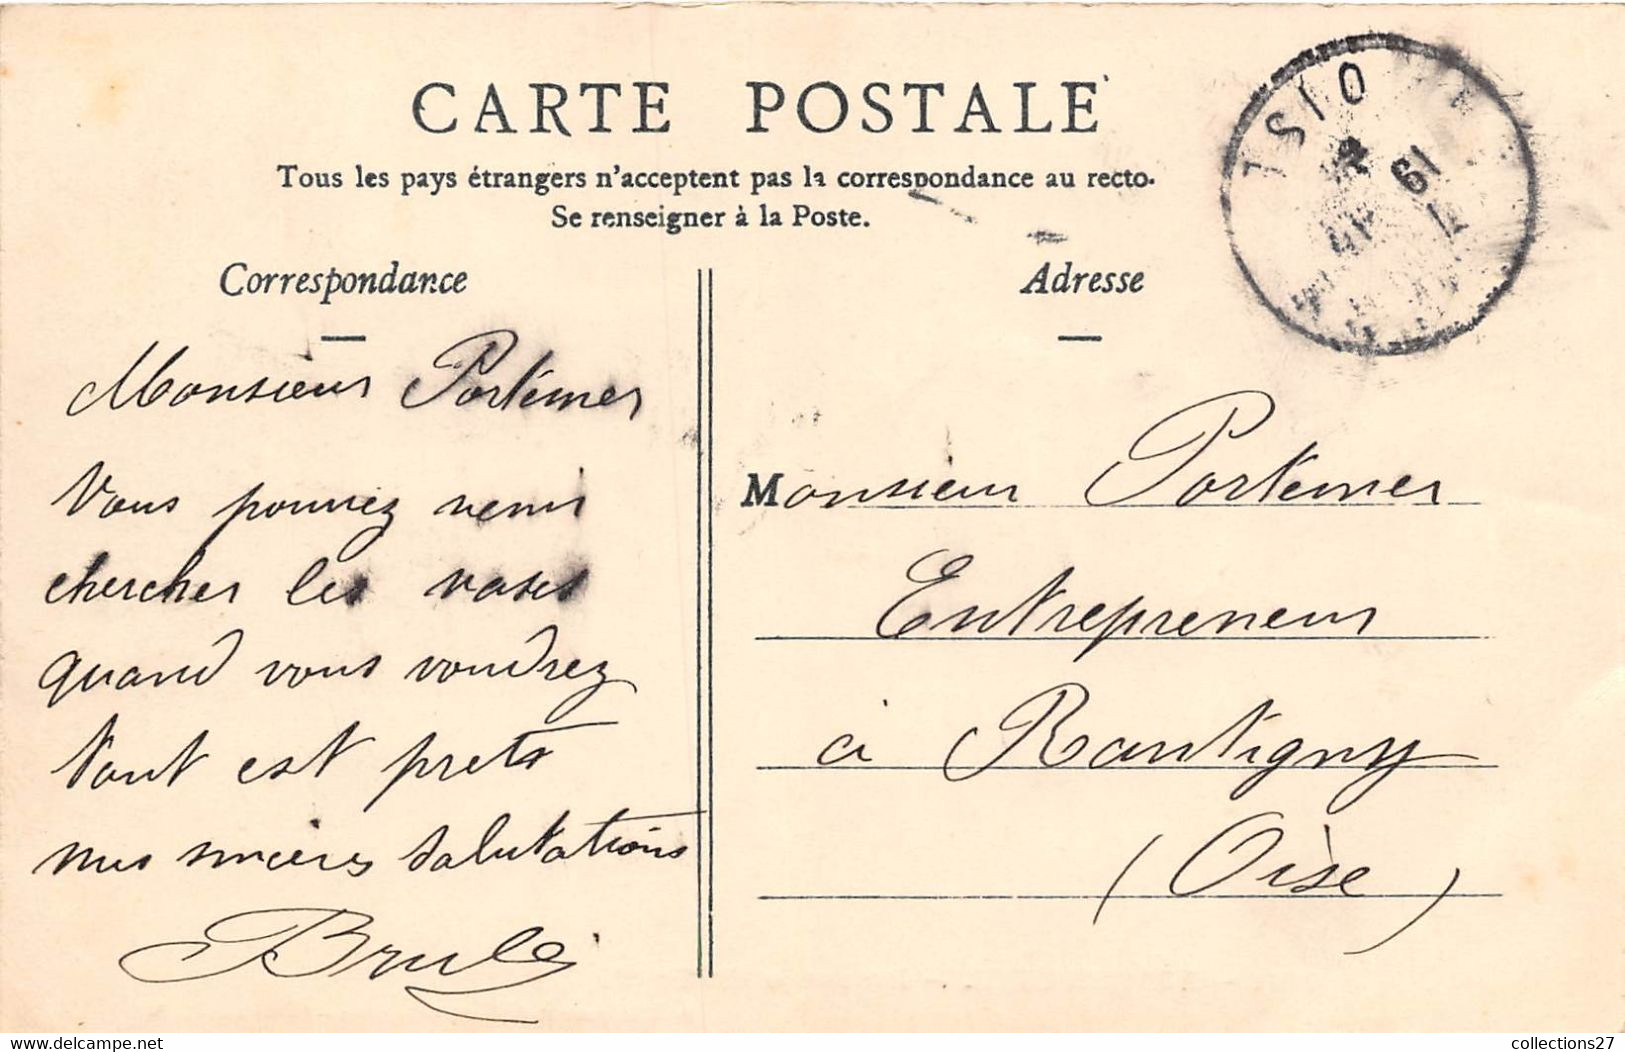 CARTE POSTALE
Tous les pays étrangers n'acceptent pas la correspondance au recto.
Se renseigner à la Poste.
Correspondance
Monsieur Portemer
Vous pouvez venir
chercher les vases
quand vous voudrez
tout est prets
mes sincères salutations
Brulé
Adresse
Monsieur Portemer
Entrepreneur
à Rantigny
(Oise)
OISE
19
11
www.delcampe.net
collections27